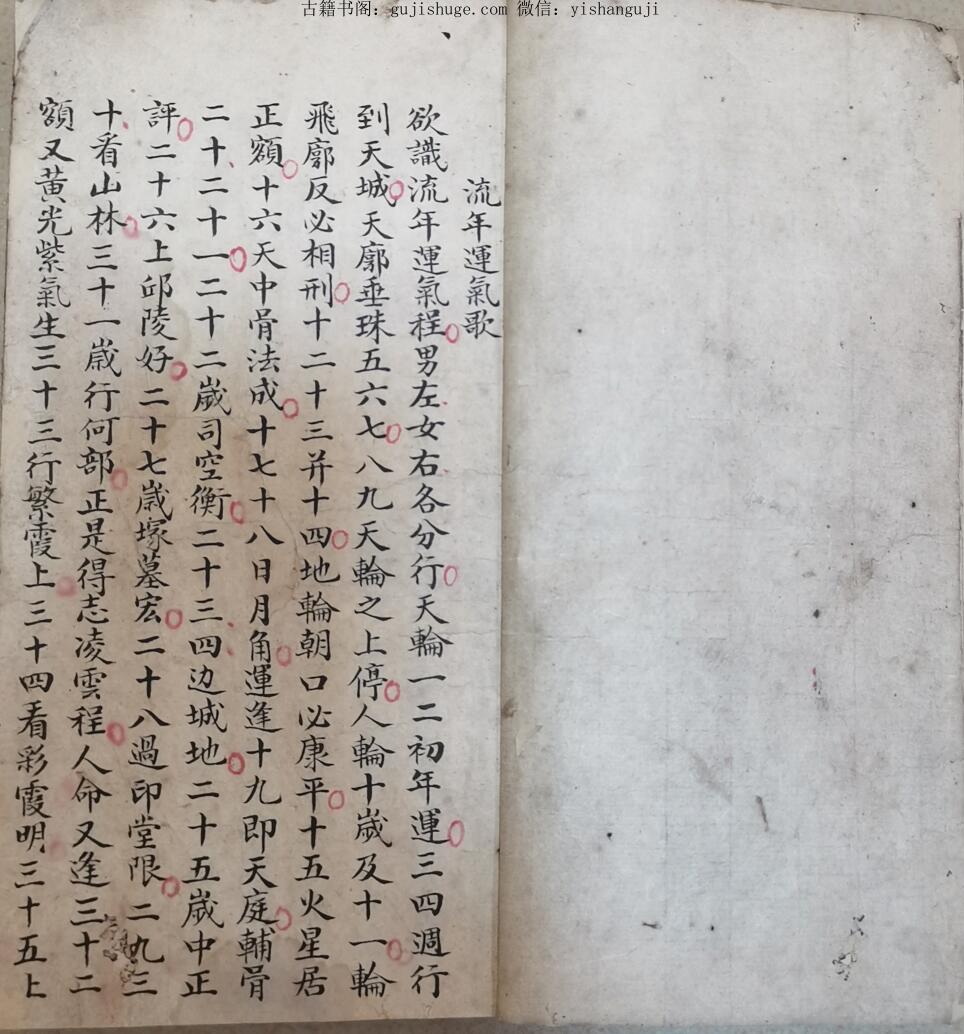 古籍书阁：gujishuge.com 微信：yishanguji
流年運氣歌
欲識流年運氣程男左女右各分行天輪一二初年運三四週行
到天城天廓垂珠五六七八九天輪之上停人輪十歲及十一輪
飛廓反必相刑十二十三并十四地輪朝口必康平十五火星居
正額十六天中骨法成十七十八日月角運逢十九即天庭輔骨
二十二十一二十二歲司空衡二十三四边城地二十五歲中正
評二十六上邱陵好二十七歲塚墓宏二十八過印堂限二九三
十看山林三十一歲行何部正是得志凌雲程人命又逢三十二
額又黃光紫氣生三十三行繁霞上三十四看彩霞明三十五上